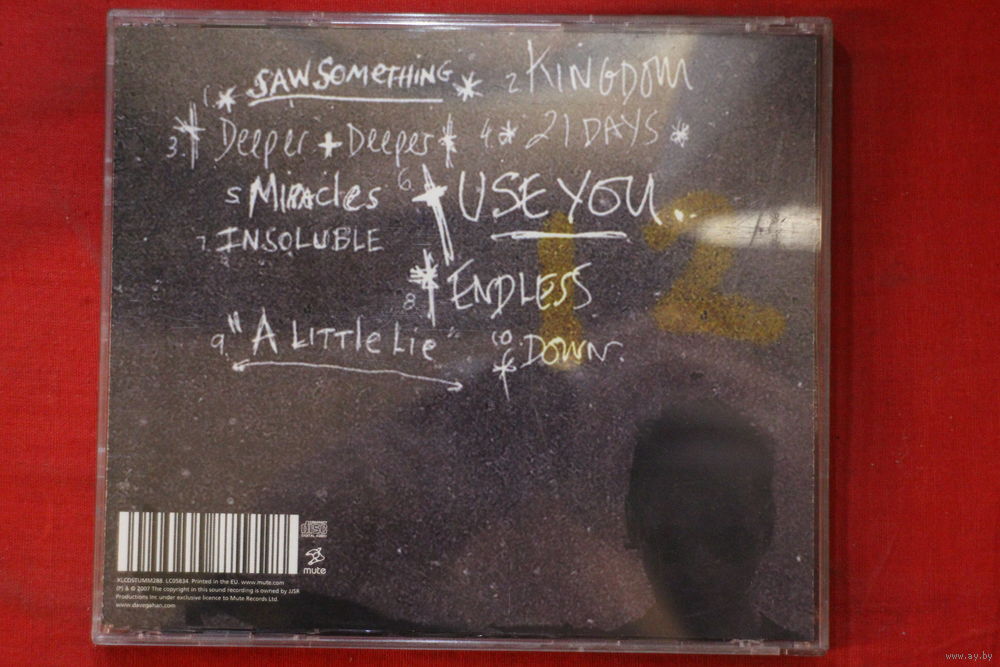 1. SAW SOMETHING 2 KINGDOM
3. Deeper + Deeper 4. 21 DAYS
5 Miracles 6. USE YOU..
7. INSOLUBLE
8 ENDLESS
9. "A Little Lie" 10 DOWN.
12
COMPACT
disc
DIGITAL AUDIO
mute
KLCDSTUMM288. LC05834. Printed in the EU. www.mute.com
(P) & © 2007 The copyright in this sound recording is owned by JJSR
Productions Inc under exclusive licence to Mute Records Ltd.
www.davegahan.com
www.ay.by